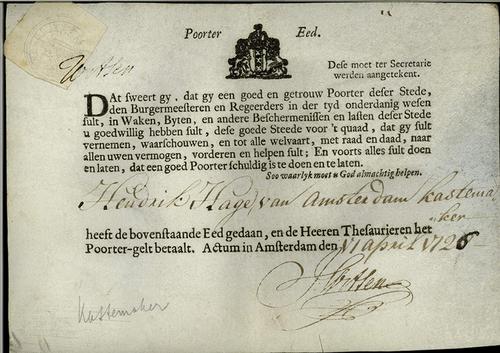 Poorter Eed.
Witsen
Dese moet ter Secretarie
werden aangetekent.
DAt sweert gy, dat gy een goed en getrouw Poorter deser Stede,
den Burgermeesteren en Regeerders in der tyd onderdanig wesen
sult, in Waken, Byten, en andere Beschermenissen en lasten deser Stede
u goedwillig hebben sult, dese goede Steede voor 't quaad, dat gy sult
vernemen, waarschouwen, en tot alle welvaart, met raad en daad, naar
allen uwen vermogen, vorderen en helpen sult; En voorts alles sult doen
en laten, dat een goed Poorter schuldig is te doen en te laten.
Soo waarlyk moet u God almachtig helpen.
Hendrik Hage, van Amsterdam kastema
ker
heeft de bovenstaande Eed gedaan, en de Heeren Thesaurieren het
Poorter-gelt betaalt. Actum in Amsterdam den 17 april 1726
Witsen
Kastemaker